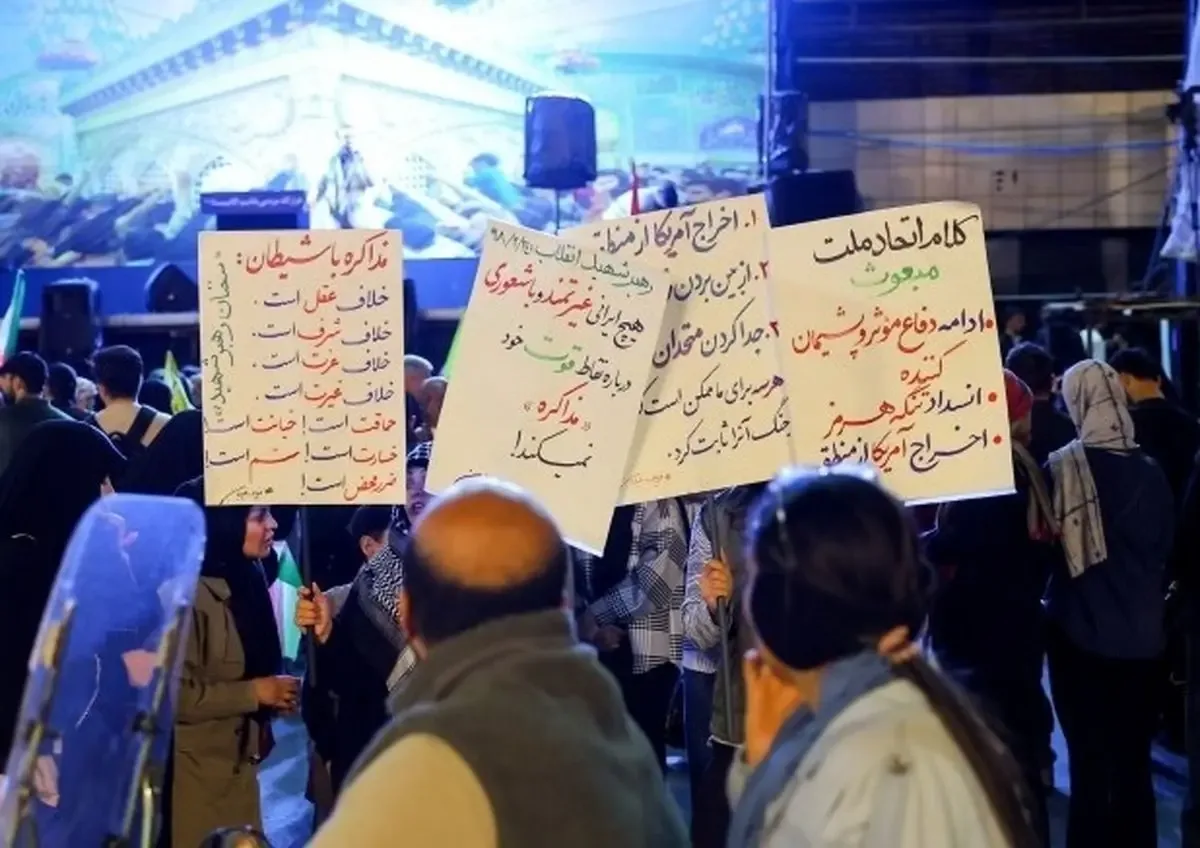 سخنان رهبر شهید
مذاکره با شیطان:
خلاف عقل است.
خلاف شرف است.
خلاف عزت است.
خلاف غیرت است.
حماقت است! خیانت است!
خسارت است! سم است!
ضرر محض است!
۹۸/۲/۲۴
رهبر شهید انقلاب
هیچ ایرانی غیرتمند و باشعوری
درباره نقاط قوت خود
«مذاکره»
نمیکند!
۱. اخراج آمریکا از منطقه
۲. از بین بردن
۳. جدا کردن متحدان
هر سه برای ما ممکن است
جنگ آنرا ثابت کرد.
کلام اتحاد ملت
مبعوث
• ادامه دفاع مؤثر و پشیمان
کننده
• انسداد تنگه هرمز
• اخراج آمریکا از منطقه